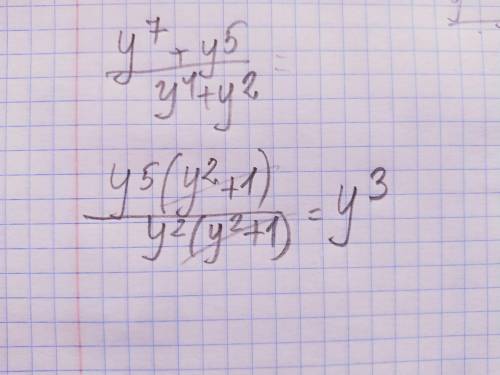 y⁷ + y⁵ =
y⁴+y²
y⁵(y²+1) = y³
y²(y²+1)